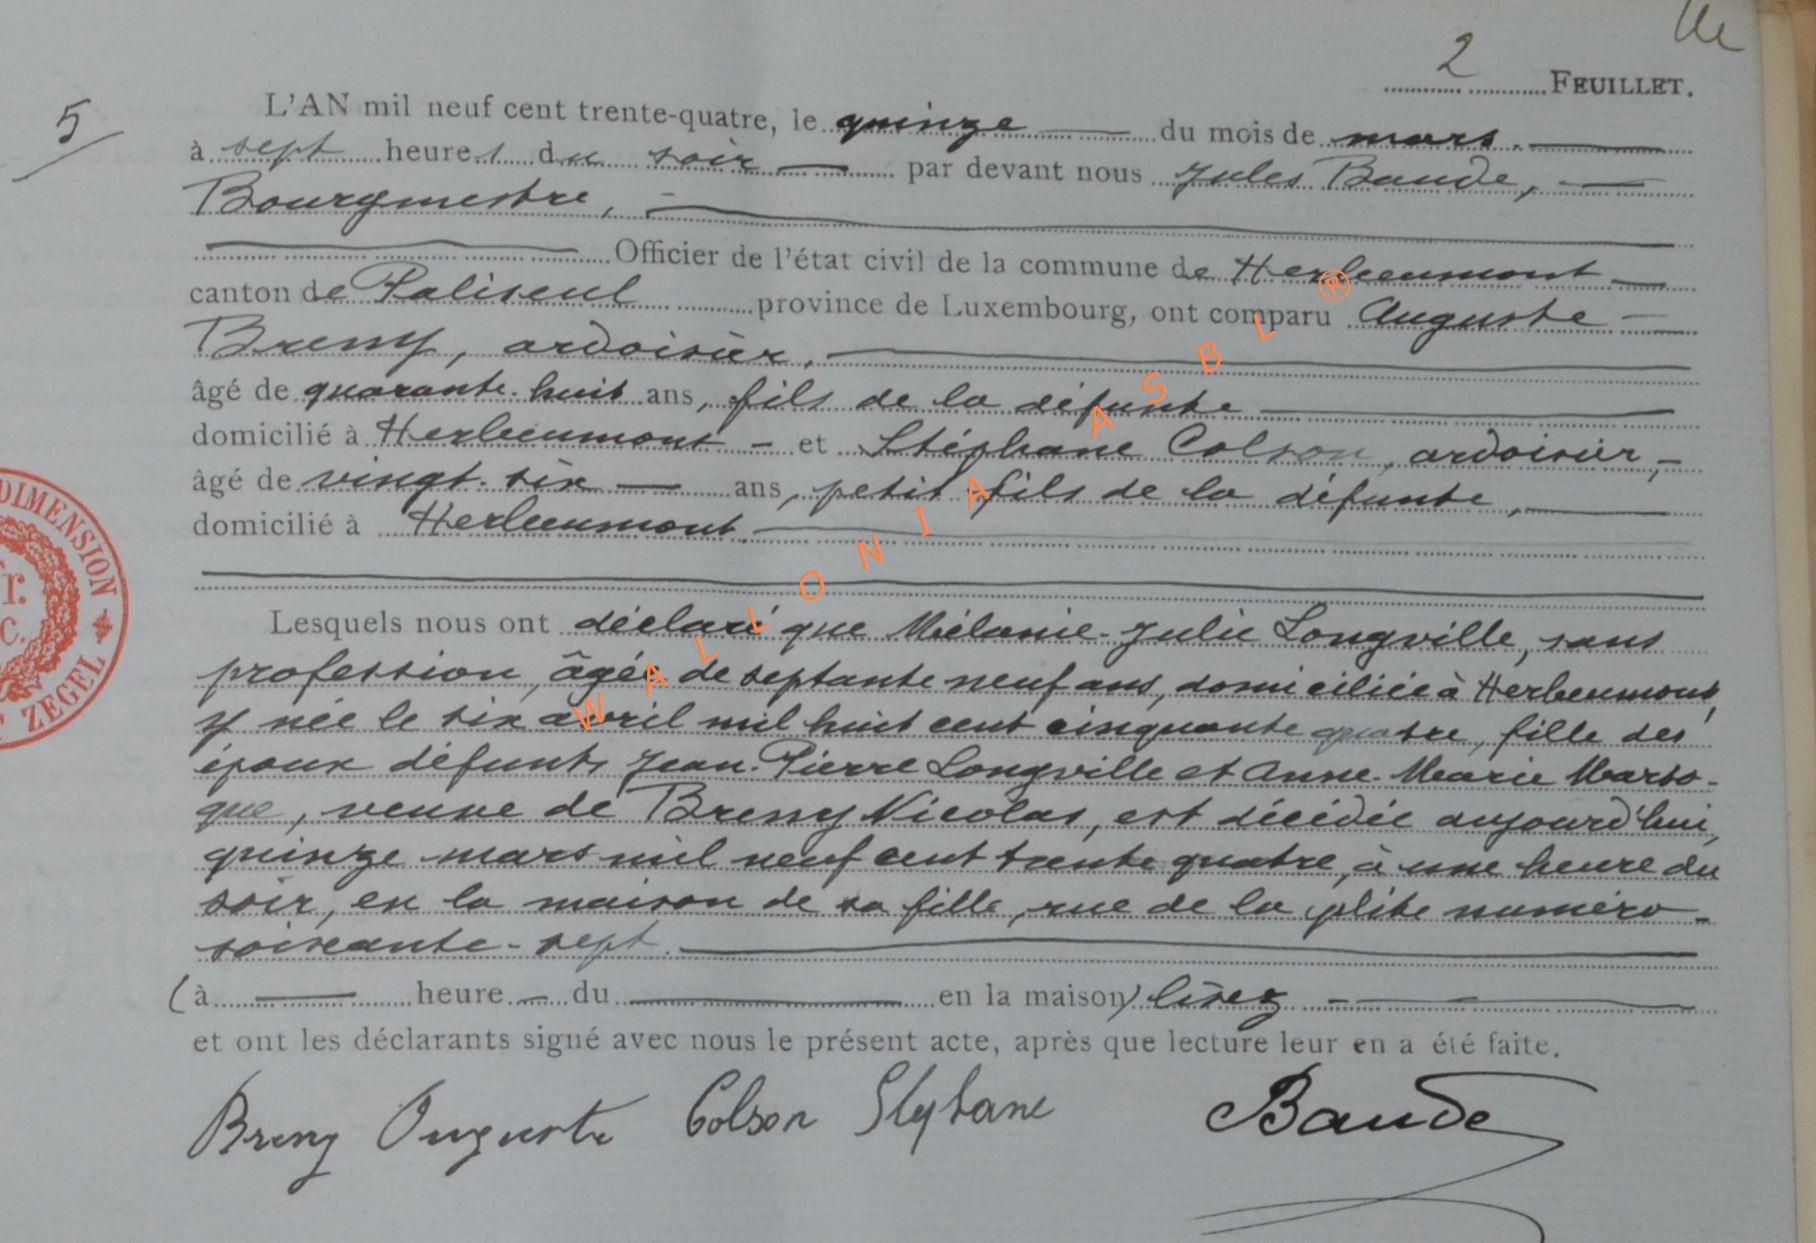 2 FEUILLET.
5
L'AN mil neuf cent trente-quatre, le quinze du mois de mars.
à sept heures du soir par devant nous Jules Baude,
Bourgmestre,
Officier de l'état civil de la commune de Herbeumont
canton de Paliseul province de Luxembourg, ont comparu Auguste
Breny, ardoisier,
âgé de quarante-huit ans, fils de la défunte
domicilié à Herbeumont - et Stéphane Colson, ardoisier,-
âgé de vingt-six ans, petit fils de la défunte,
domicilié à Herbeumont.
Lesquels nous ont déclaré que Mélanie-Julie Longville, sans
profession, âgée de septante neuf ans, domiciliée à Herbeumont,
y née le six avril mil huit cent cinquante quatre, fille des
époux défunts Jean-Pierre Longville et Anne-Marie Marto-
que, veuve de Breny Nicolas, est décédée aujourd'hui,
quinze mars mil neuf cent trente quatre, à une heure du
soir, en la maison de sa fille, rue de la numéro
soixante-sept.
(à heure du en la maison) lisez
et ont les déclarants signé avec nous le présent acte, après que lecture leur en a été faite.
Breny Auguste Colson Stephane Baude
DIMENSION
Fr.
C.
ZEGEL
WALLONIA ASBL ®